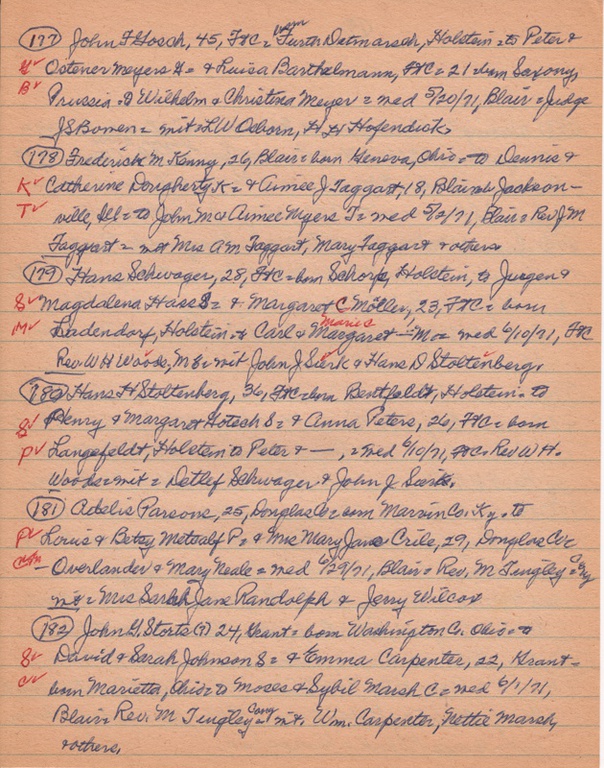 (177) John F Gosch, 45, FtC = born Furth Ditmarsch, Holstein = to Peter &
G Ostener Meyers G = & Luisa Barthelmann, FtC = 21 = born Saxony,
B Prussia = to Wilhelm & Christina Meyer = med 5/20/71, Blair = Judge
J S Bowen = wit = L W Osborn, H H Hofendick.
(178) Frederick M Kenny, 26, Blair = born Geneva, Ohio = to Dennis &
K Catherine Dougherty K = & Aimee J Taggart, 18, Blair = b Jackson-
T ville, Ill = to John M & Aimee Myers T = med 5/2/71, Blair = Rev J M
Taggart = wit Mrs A M Taggart, Mary Taggart & others
(179) Hans Schwager, 28, FtC = born Schorps, Holstein, to Juergen &
S Magdalena Hass S = & Margaret C Möller, 23, FtC = born
M Ladendorf, Holstein = to Carl & Margaret Marie C — M = med 6/10/71, FtC
Rev W H Woods, M E = wit John J Sierk & Hans D Stoltenberg.
(180) Hans H Stoltenberg, 36, FtC = born Bentfeldt, Holstein = to
S Henry & Margaret Hotech S = & Anna Peters, 26, FtC = born
P Langefeldt, Holstein to Peter & — , = med 6/10/71, FtC = Rev W H.
Woods = wit = Detlef Schwager & John J Sierk.
(181) Adelis Parsons, 25, Douglas Co = born Marvin Co. Ky. to
P Louis & Betsy Metcalf P = & Mrs Mary Jane Crile, 29, Douglas Co =
- Overlander & Mary Neale = med 6/29/71, Blair = Rev. M Tingley = Cong
wit = Mrs Sarah Jane Randolph & Jerry Wilcox
(182) John G. Storts (?) 24, Grant = born Washington Co. Ohio = to
S David & Sarah Johnson S = & Emma Carpenter, 22, Grant =
C born Marietta, Ohio = to Moses & Sybil Marsh C = med 6/1/71,
Blair = Rev. M Tingley Cong = wit. Wm. Carpenter, Nettie Marsh,
& others.